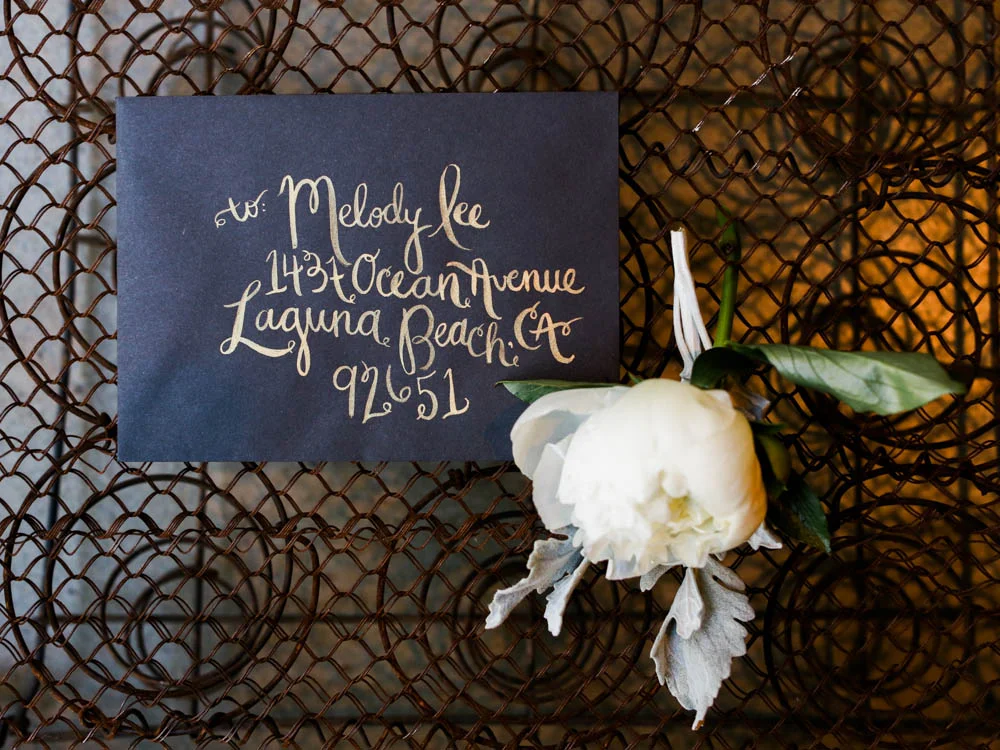 to: Melody Lee
1437 Ocean Avenue
Laguna Beach, CA
92651